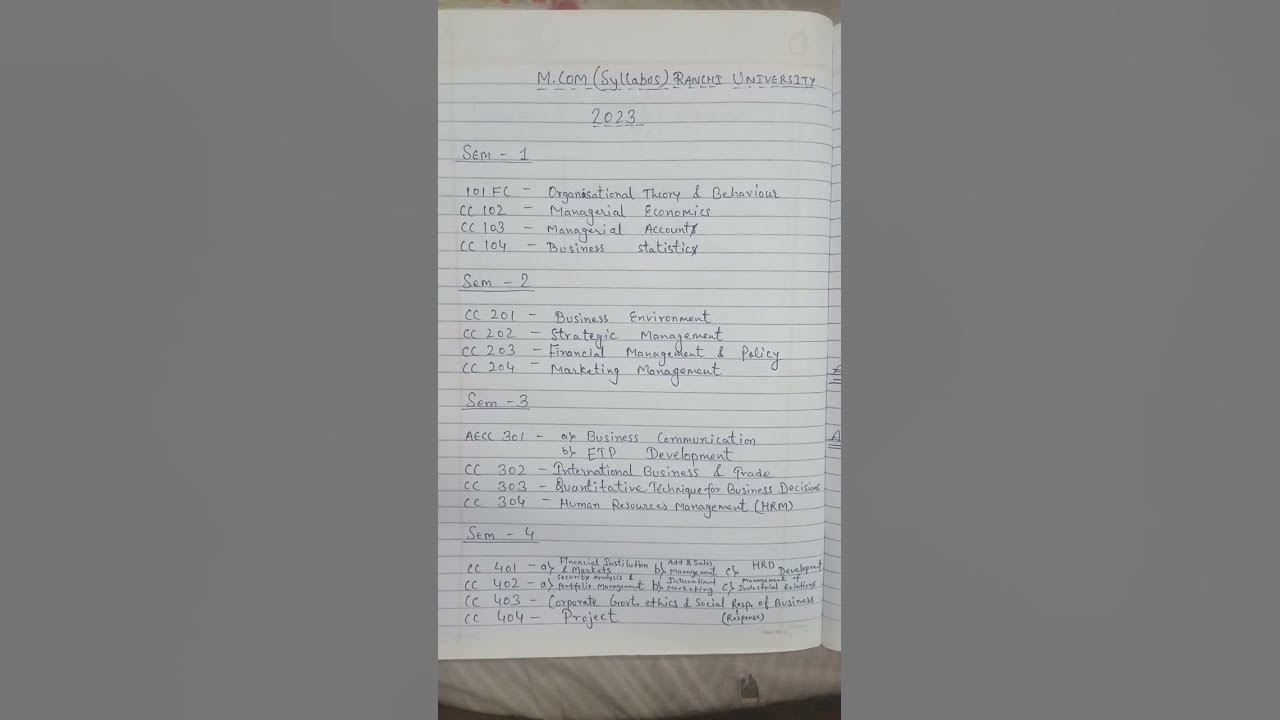 M.COM (Syllabus) RANCHI UNIVERSITY
2023
Sem - 1
101 FC - Organisational Theory & Behaviour
CC 102 - Managerial Economics
CC 103 - Managerial Accounts
CC 104 - Business statistics
Sem - 2
CC 201 - Business Environment
CC 202 - Strategic Management
CC 203 - Financial Management & Policy
CC 204 - Marketing Management
Sem - 3
AECC 301 - a) Business Communication
b) ETP Development
CC 302 - International Business & Trade
CC 303 - Quantitative Technique for Business Decisions
CC 304 - Human Resources Management (HRM)
Sem - 4
CC 401 - a) Financial Institution & Markets b) Add & Sales Management c) HRD Development
CC 402 - a) Security Analysis & Portfolio Management b) International Marketing c) Management of Industrial Relations
CC 403 - Corporate Govt. ethics & Social Resp. of Business
CC 404 - Project (Response)